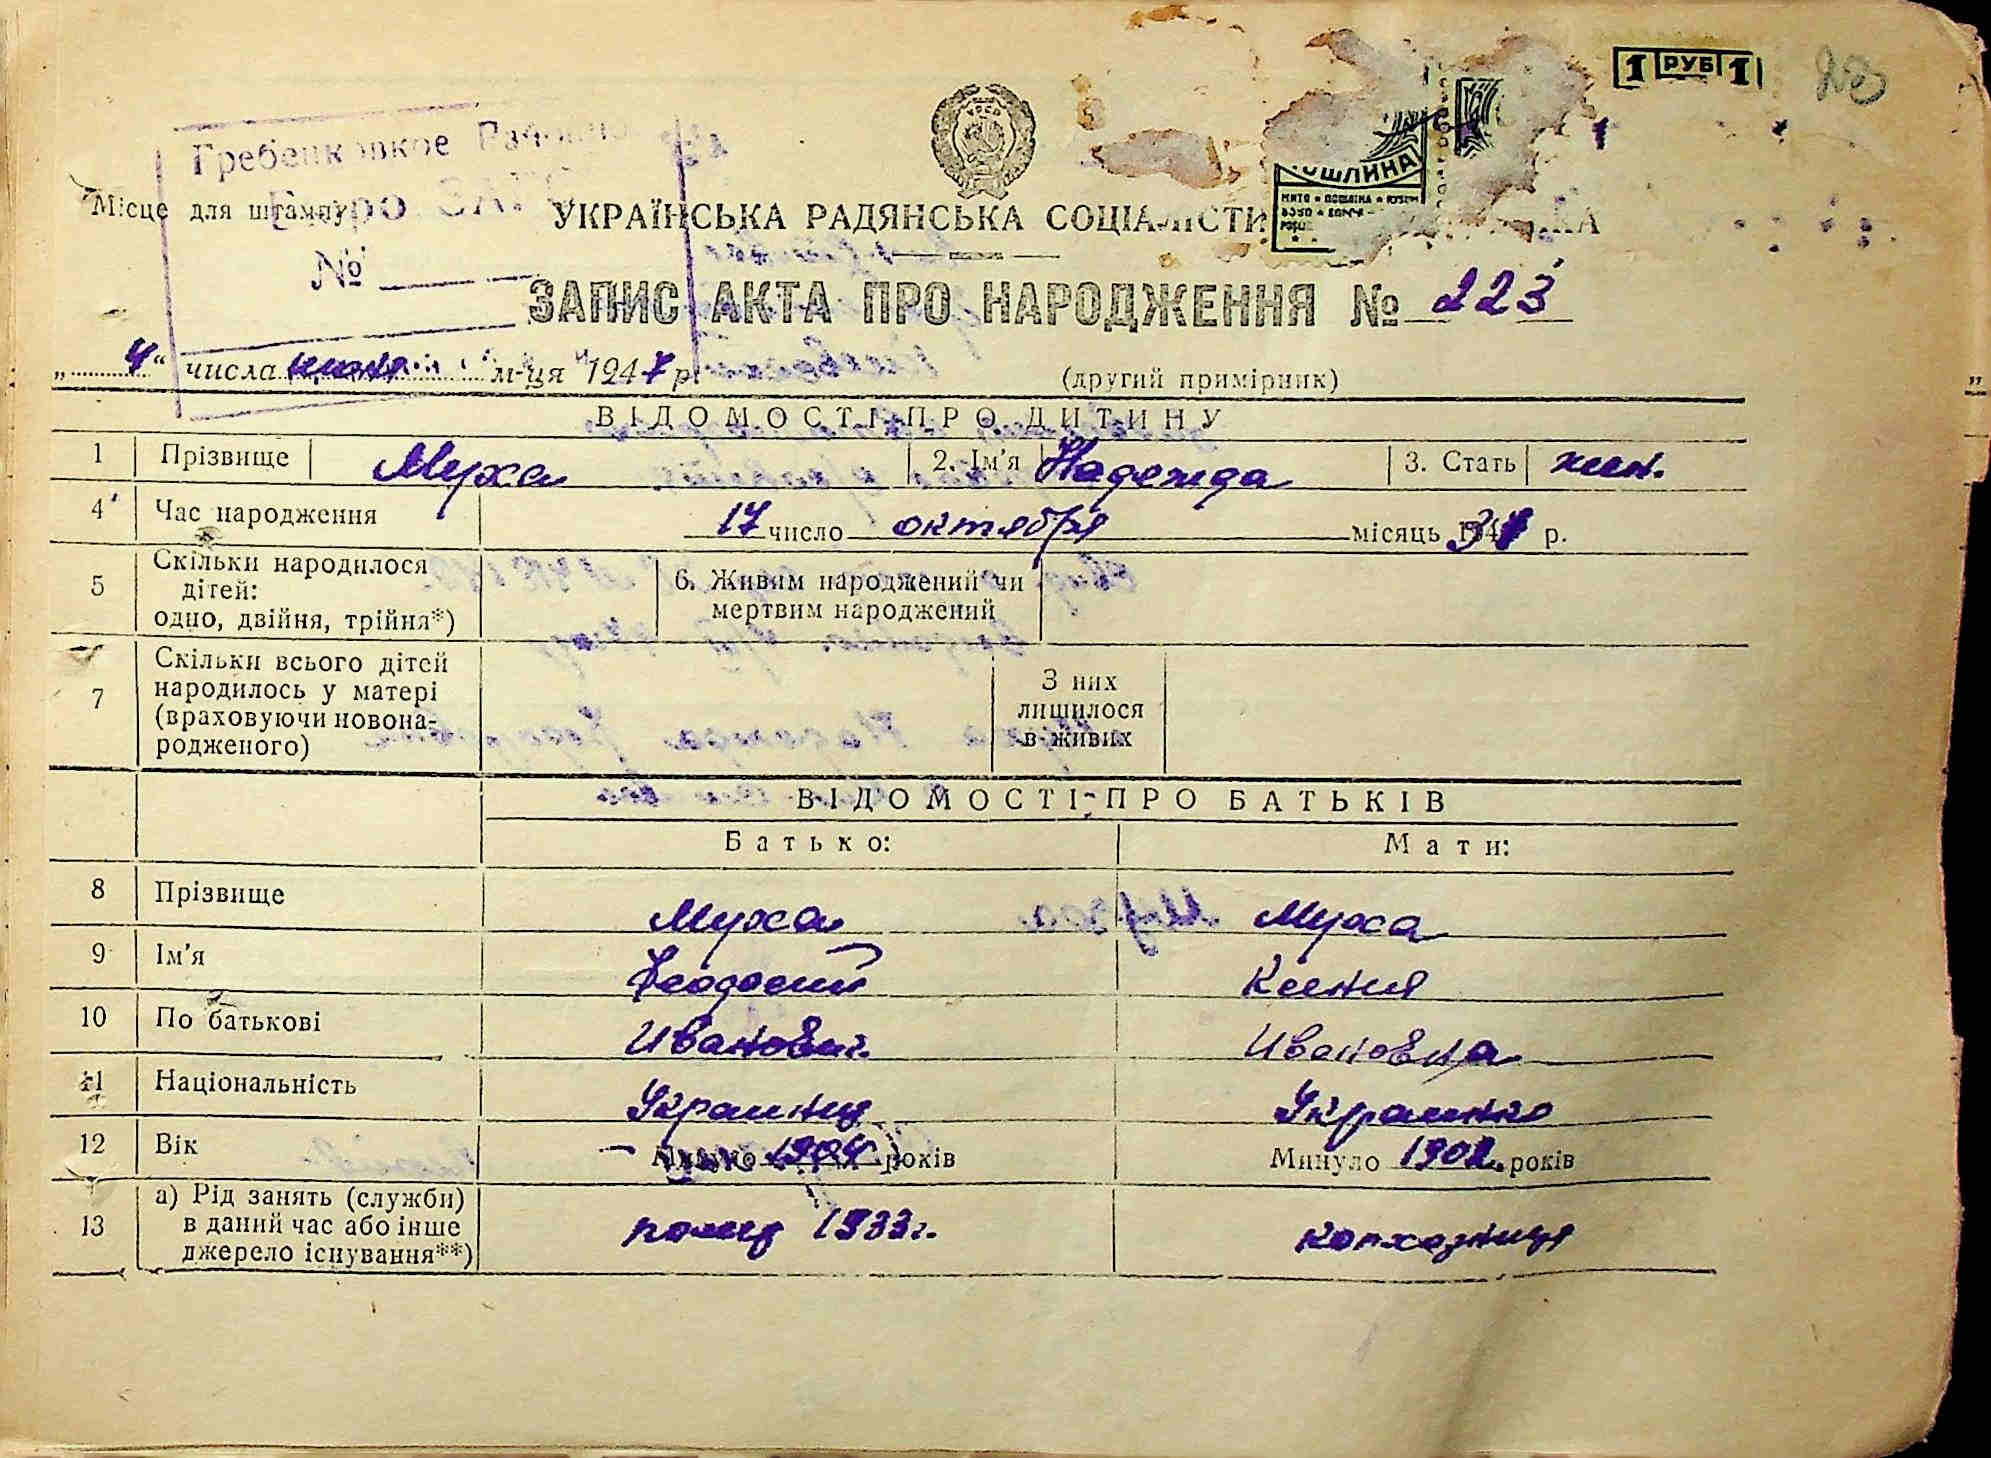 1 РУБ 1
Гребенковское
Бюро ЗАГС
№
Місце для штампу
ПОШЛИНА
УКРАЇНСЬКА РАДЯНСЬКА СОЦІАЛІСТИ
ЗАПИС АКТА ПРО НАРОДЖЕННЯ № 223
„ 4 “ числа июня м-ця 1947 р.
(другий примірник)
ВІДОМОСТІ ПРО ДИТИНУ
1 Прізвище Муха 2. Ім'я Надежда 3. Стать жен.
4 Час народження 17 число октября місяць 31 р.
5 Скільки народилося дітей: одно, двійня, трійня*) 6. Живим народжений чи мертвим народжений
7 Скільки всього дітей народилось у матері (враховуючи новонародженого) З них лишилося в живих
ВІДОМОСТІ ПРО БАТЬКІВ
Батько: Мати:
8 Прізвище Муха Муха
9 Ім'я Феодосий Ксения
10 По батькові Иванович. Ивановна
11 Національність Украинец Украинка
12 Вік Минуло 1904 років Минуло 1902 років
13 а) Рід занять (служби) в даний час або інше джерело існування**) помер 1933г. колхозниця